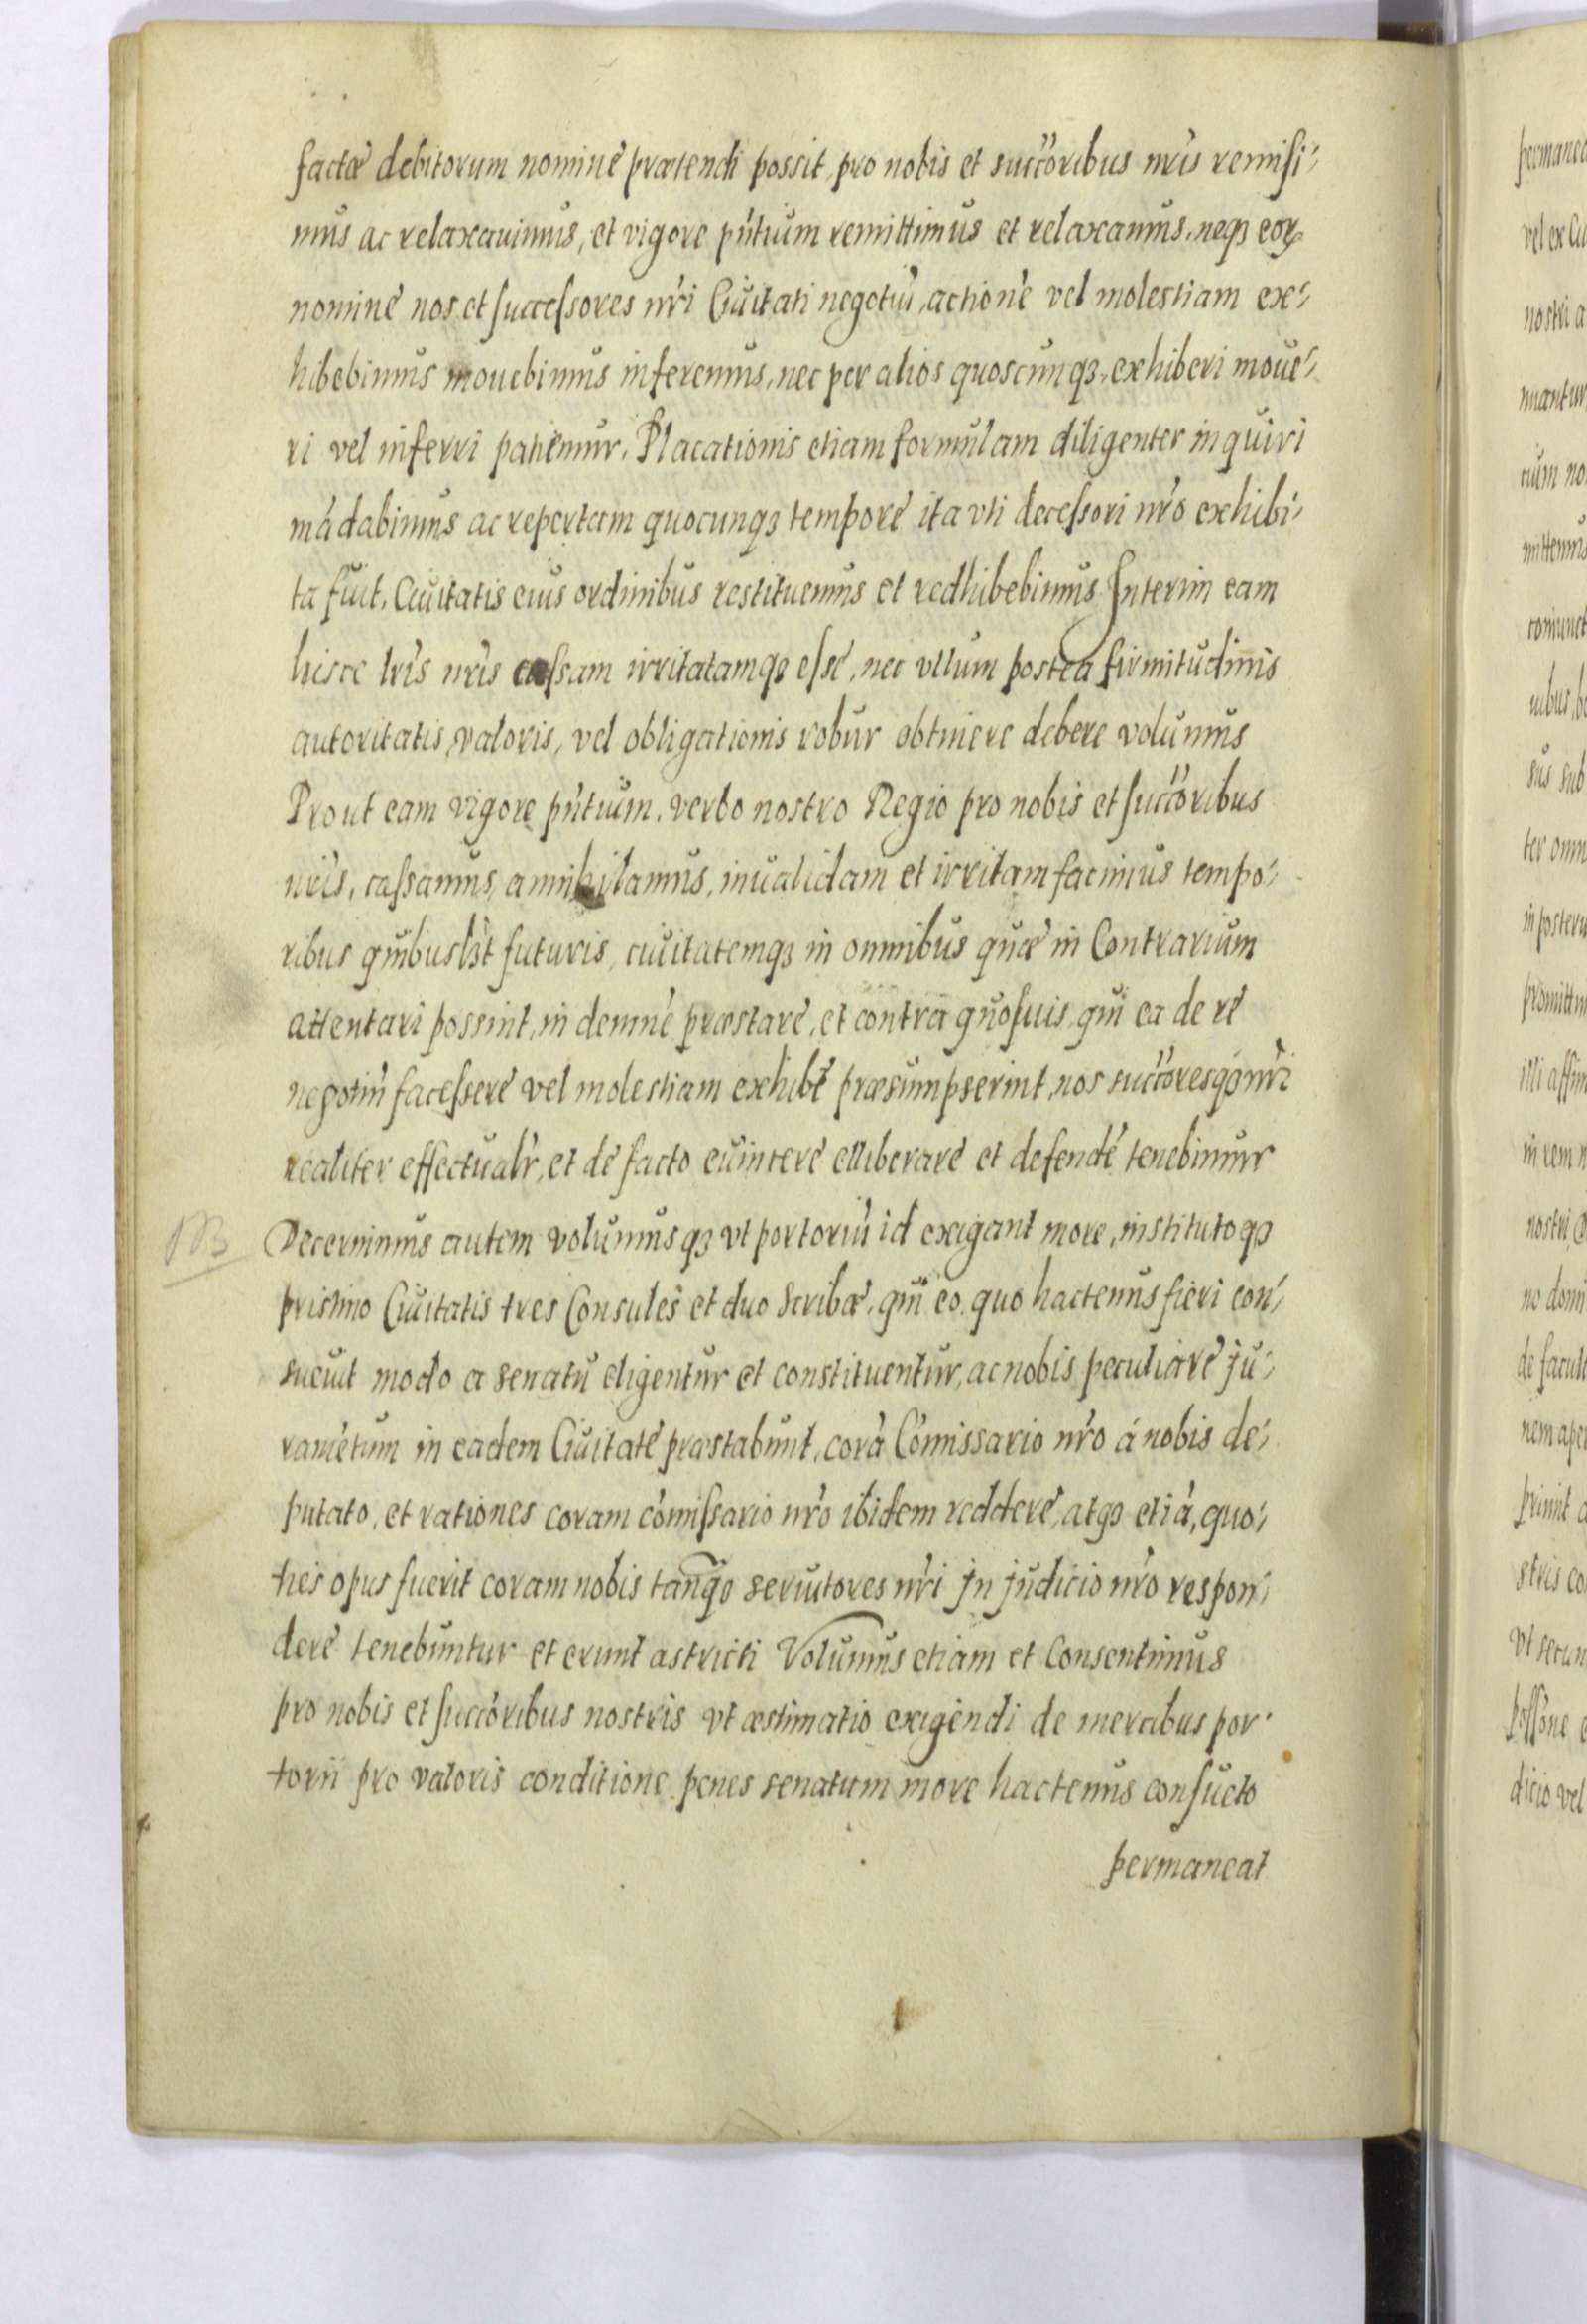 factæ debitorum nominè prætendi possit, pro nobis et succ̃oribus nr̃is remisi-
mus ac relaxauimus, et vigore pñtium remittimus et relaxamus, neqȝ eoꝝ
nominè nos et successores nr̃i Ciuitati negotiũ, actionẽ vel molestiam ex-
hibebimus mouebimus inferemus, nec per alios quoscunqȝ, exhiberi moue-
ri vel inferri patiemur. Placationis etiam formulam diligenter inquiri
mãdabimus ac repertam quocunqȝ temporè ita vti decessori nr̃o exhibi-
ta fuit, Ciuitatis eius ordinibus restituemus et redhibebimus Interim eam
hisce lr̃is nr̃is cassam irritatamqȝ essè, nec vllum postea firmitudinis
autoritatis, valoris, vel obligationis robur obtinere debere volumus
Prout eam vigore pñtium, verbo nostro Regio pro nobis et succ̃oribus
nr̃is, cassamus, annihilamus, inualidam et irritam facimus tempo-
ribus quibuslt̃ futuris, ciuitatemqȝ in omnibus quæ in Contrarium
attentari possint, in demnè præstarè, et contra quosuis, qui ea de rè
negotiũ facesserè vel molestiam exhibẽ præsumpserint, nos succ̃oresqȝ nr̃i
realiter effectualr̃, et dè facto euincerè elliberarè et defendẽ tenebimur
NB Decernimus autem volumusqȝ vt portoriũ id exigant more, institutoqȝ
pristino Ciuitatis tres Consulès et duo Scribæ, qui eo, quo hactenus fieri con-
sueuit modo a senatu eligentur et constituentur, ac nobis peculiarè ju-
ramẽtum in eadem Ciuitatè præstabunt, corã Cõmissario nr̃o á nobis de-
putato, et rationes coram cõmissario nr̃o ibidem redderè, atqȝ etiã, quo-
ties opus fuerit coram nobis tanqȝ seruitores nr̃i jn judicio nr̃o respon-
derè tenebuntur et erunt astricti Volumus etiam et Consentimus
pro nobis et succ̃oribus nostris vt æstimatio exigendi de mercibus por-
torii pro valoris conditione penes senatum more hactenus consueto
permaneat